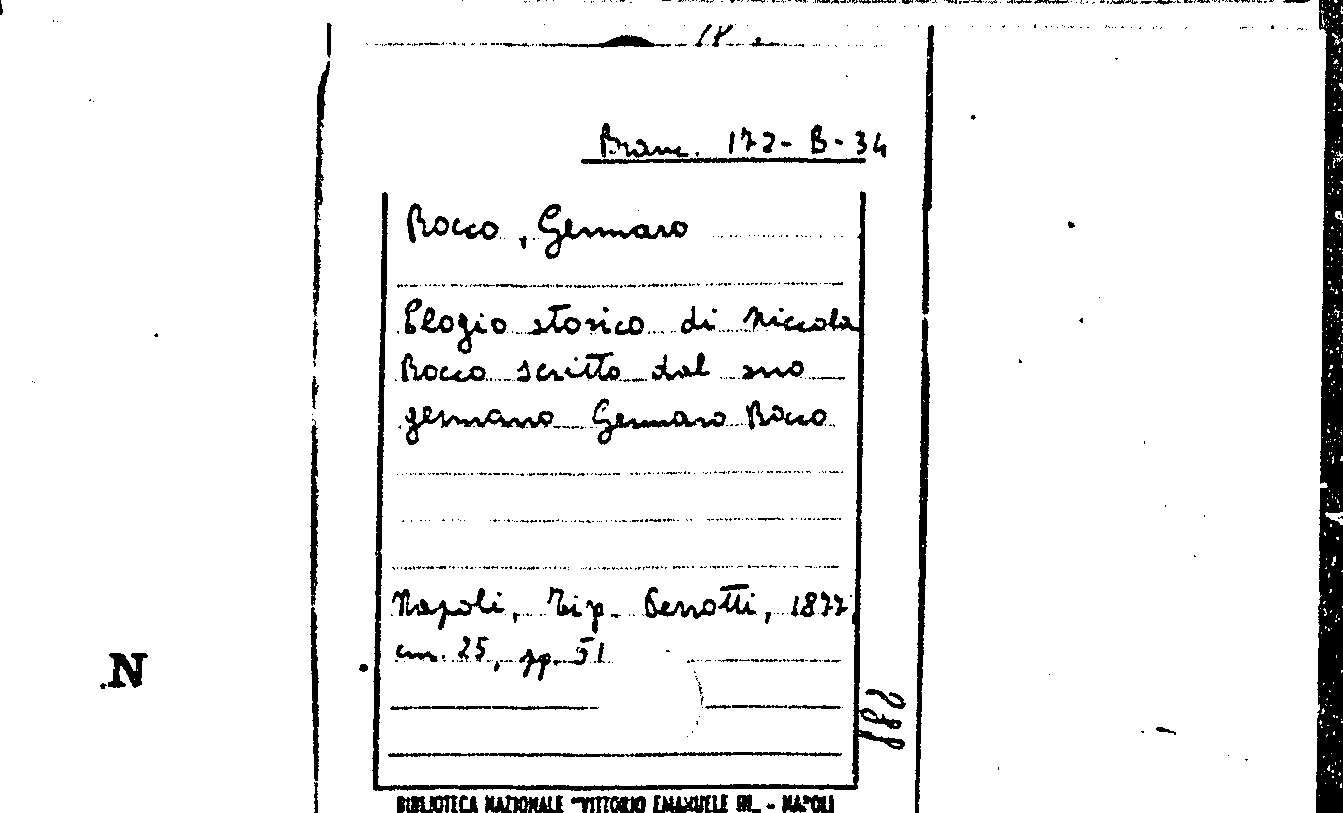 18.
Branc. 172-B-34
Rocco, Gennaro
Elogio storico di Niccola
Rocco scritto dal suo
germano Gennaro Rocco
Napoli, Tip. Perrotti, 1877,
cm. 25, pp. 51
N
288
BIBLIOTECA NAZIONALE "VITTORIO EMANUELE III" - NAPOLI